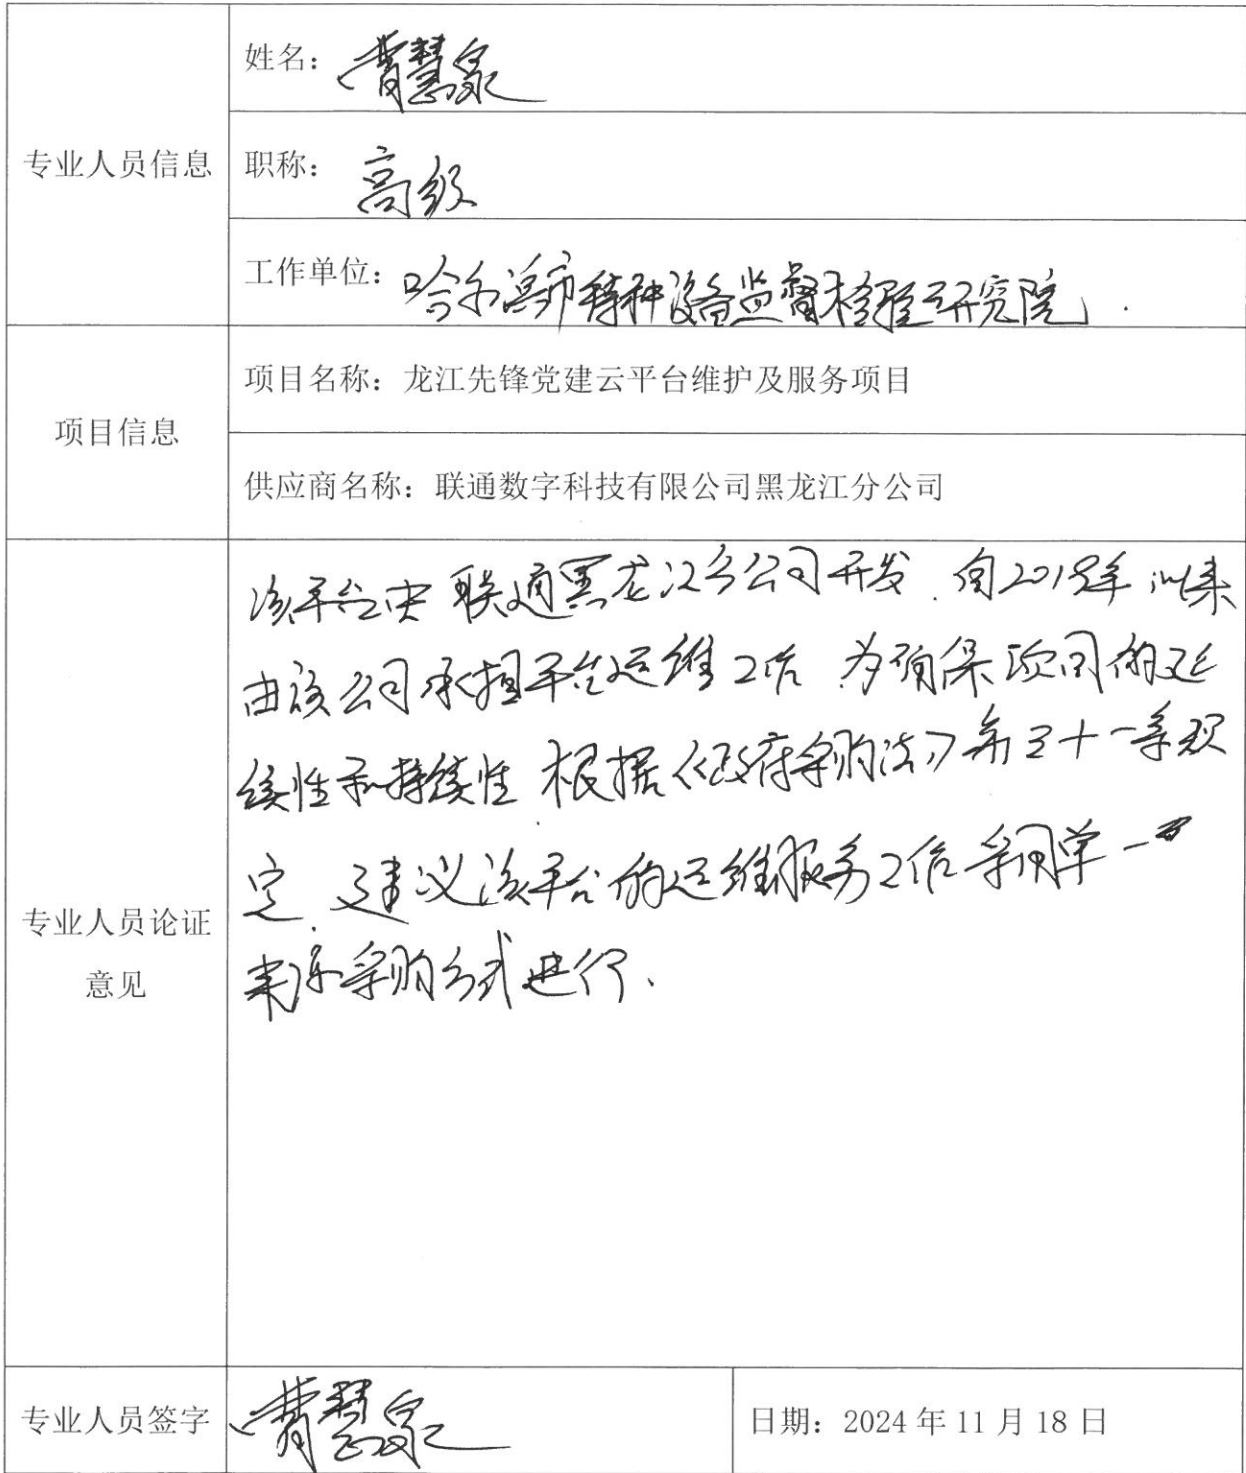 专业人员信息
姓名：曹慧泉
职称：高级
工作单位：哈尔滨市特种设备监督检验研究院.
项目信息
项目名称：龙江先锋党建云平台维护及服务项目
供应商名称：联通数字科技有限公司黑龙江分公司
专业人员论证
意见
该平台由联通黑龙江分公司开发.自2018年以来
由该公司承担平台运维工作 为确保项目的延
续性和持续性 根据《政府采购法》第三十一条规
定.建议该平台的运维服务工作采用单一
来源采购方式进行.
专业人员签字
曹慧泉
日期：2024年11月18日